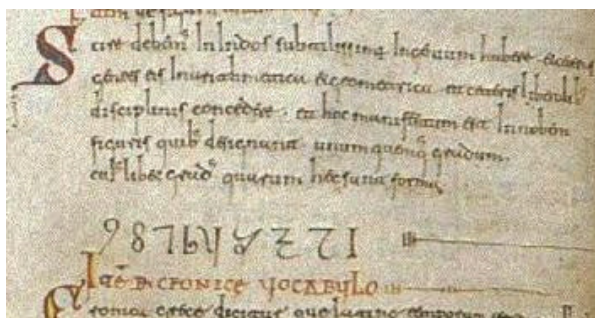 Scire debem' In Indos subtilissimum Ingenium habere et ceteras
gentes eis In arithmetica et geometrica et ceteris liberalib'
disciplinis concedere. et hoc manifestum est In nobem
figuris quib' designant unum quenq' gradum.
cuiuslibet grad' quarum hec sunt forma
9 8 7 6 5 4 3 2 1
Ite DE CRONICE VOCABULO
Cronica grece dicitur que latine temporum